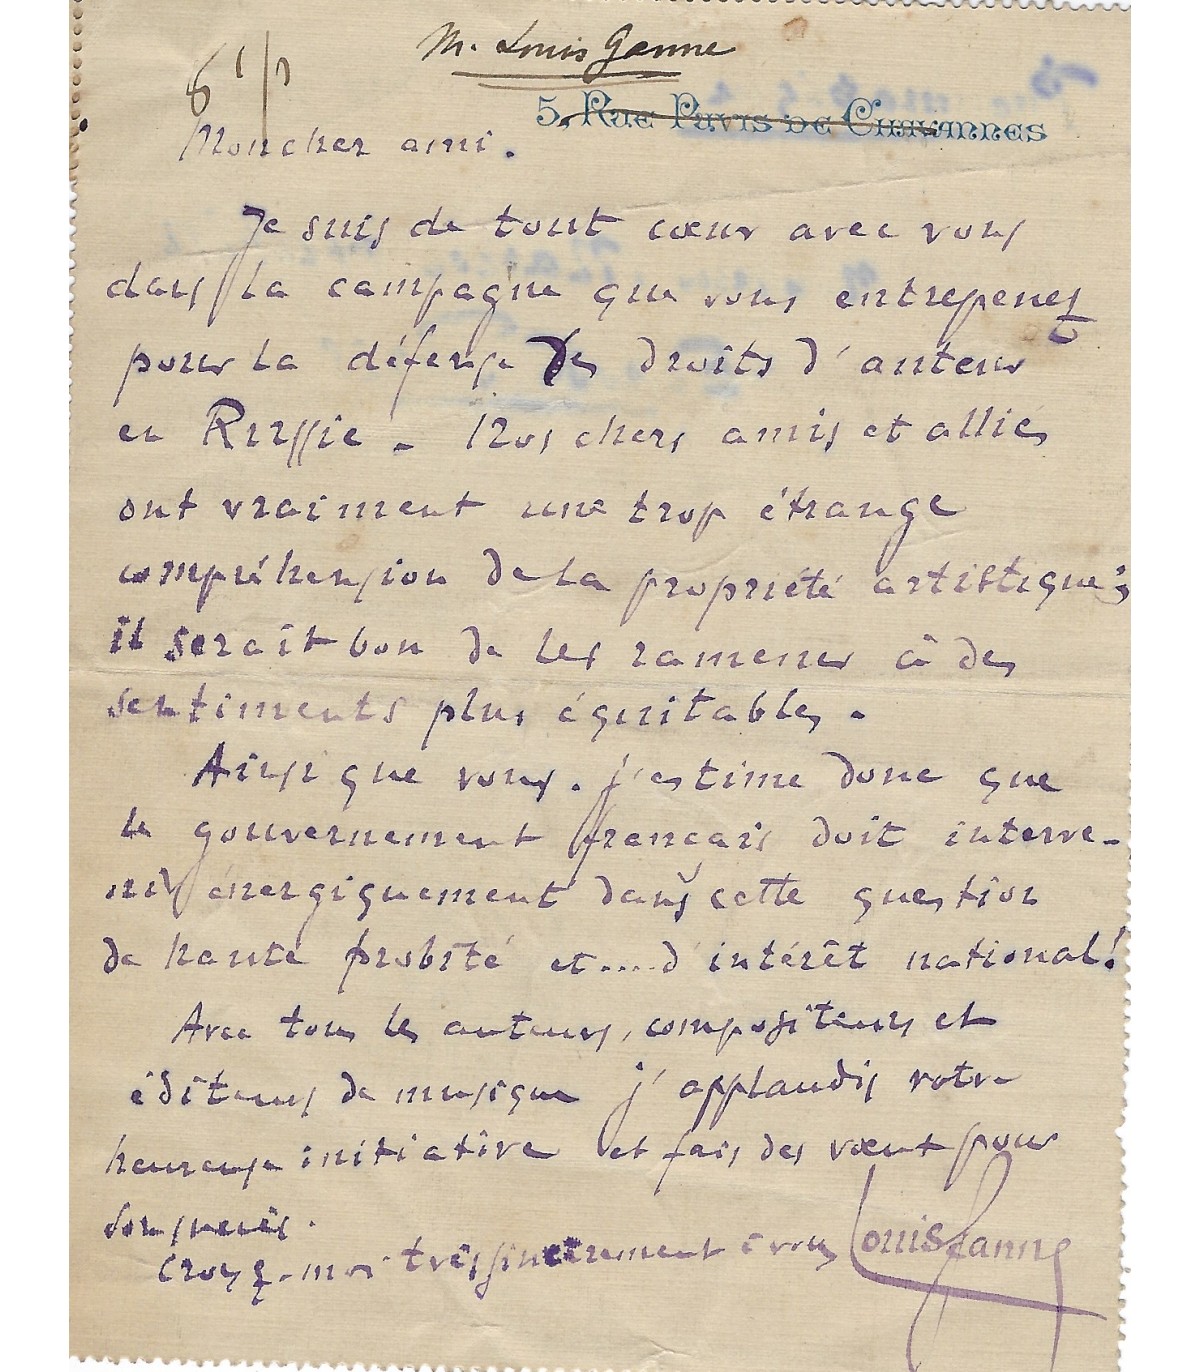 M. Louis Ganne
5, Rue Puvis de Chavannes
Mon cher ami.
Je suis de tout cœur avec vous
dans la campagne que vous entrepenez
pour la défense des droits d'auteur
en Russie - Nos chers amis et alliés
ont vraiment une trop étrange
compréhension de la propriété artistique;
il serait bon de les ramener à des
sentiments plus équitables.
Ainsi que vous. j'estime donc que
le gouvernement français doit interve-
nir énergiquement dans cette question
de haute probité et....d'intérêt national!
Avec tous les auteurs, compositeurs et
éditeurs de musique j'applaudis votre
heureuse initiative et fais des vœux pour
son succès.
Croyez-moi très sincèrement à vous Louis Ganne